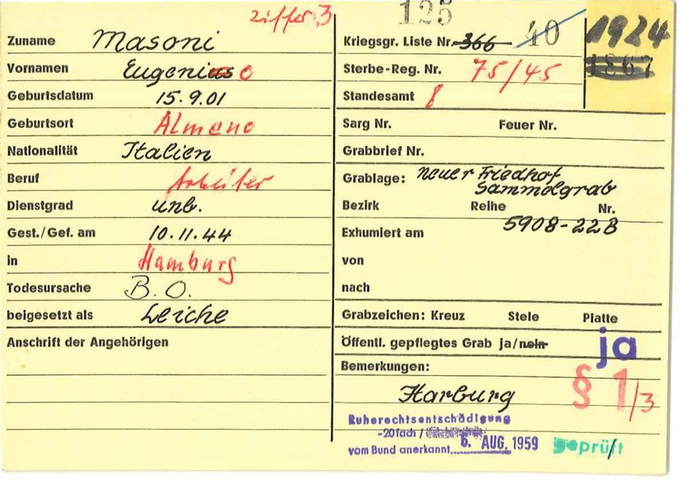 ziffer 3
Zuname Masoni
Vornamen Eugenius o
Geburtsdatum 15.9.01
Geburtsort Almeno
Nationalität Italien
Beruf Arbeiter
Dienstgrad unb.
Gest./Gef. am 10.11.44
in Hamburg
Todesursache B.O.
beigesetzt als Leiche
Anschrift der Angehörigen
125
Kriegsgr. Liste Nr. 366 40
1924
1867
Sterbe-Reg. Nr. 75/45
Standesamt 8
Sarg Nr. Feuer Nr.
Grabbrief Nr.
Grablage: neuer Friedhof
Sammelgrab
Bezirk Reihe Nr.
5908-22B
Exhumiert am
von
nach
Grabzeichen: Kreuz Stele Platte
Öffentl. gepflegtes Grab ja/nein ja
Bemerkungen:
§ 1/3
Harburg
Ruherechtsentschädigung
-20fach /
vom Bund anerkannt 6. AUG. 1959
geprüft